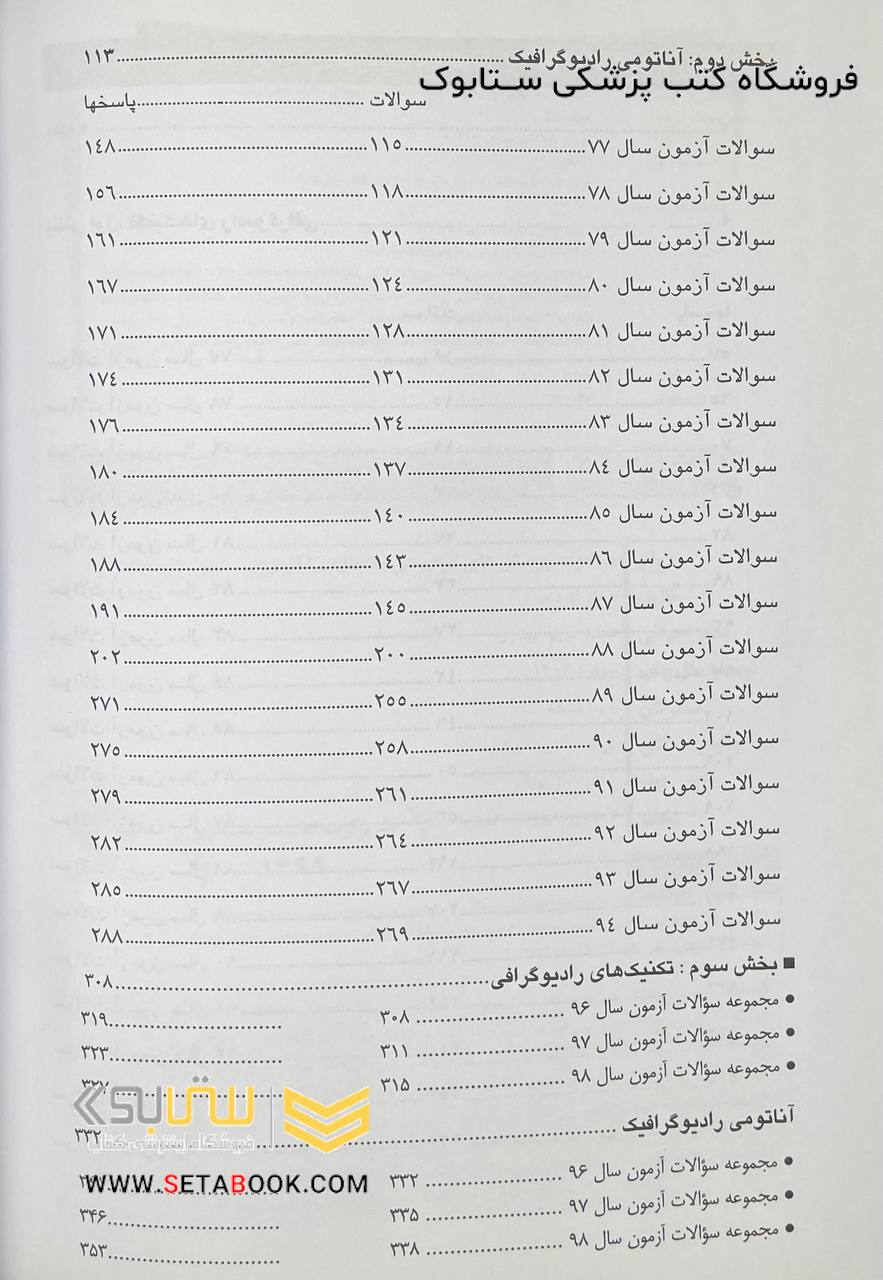 بخش دوم: آناتومی رادیوگرافیک ........ ۱۱۳
فروشگاه کتب پزشکی ستابوک
سوالات ........ پاسخها
سوالات آزمون سال ۷۷ ........ ۱۱۵ ........ ۱۴۸
سوالات آزمون سال ۷۸ ........ ۱۱۸ ........ ۱۵۶
سوالات آزمون سال ۷۹ ........ ۱۲۱ ........ ۱۶۱
سوالات آزمون سال ۸۰ ........ ۱۲۴ ........ ۱۶۷
سوالات آزمون سال ۸۱ ........ ۱۲۸ ........ ۱۷۱
سوالات آزمون سال ۸۲ ........ ۱۳۱ ........ ۱۷۴
سوالات آزمون سال ۸۳ ........ ۱۳۴ ........ ۱۷۶
سوالات آزمون سال ۸۴ ........ ۱۳۷ ........ ۱۸۰
سوالات آزمون سال ۸۵ ........ ۱۴۰ ........ ۱۸۴
سوالات آزمون سال ۸۶ ........ ۱۴۳ ........ ۱۸۸
سوالات آزمون سال ۸۷ ........ ۱۴۵ ........ ۱۹۱
سوالات آزمون سال ۸۸ ........ ۲۰۰ ........ ۲۰۲
سوالات آزمون سال ۸۹ ........ ۲۵۵ ........ ۲۷۱
سوالات آزمون سال ۹۰ ........ ۲۵۸ ........ ۲۷۵
سوالات آزمون سال ۹۱ ........ ۲۶۱ ........ ۲۷۹
سوالات آزمون سال ۹۲ ........ ۲۶۴ ........ ۲۸۲
سوالات آزمون سال ۹۳ ........ ۲۶۷ ........ ۲۸۵
سوالات آزمون سال ۹۴ ........ ۲۶۹ ........ ۲۸۸
■ بخش سوم : تکنیک‌های رادیوگرافی ........ ۳۰۸
● مجموعه سؤالات آزمون سال ۹۶ ........ ۳۰۸ ........ ۳۱۹
● مجموعه سؤالات آزمون سال ۹۷ ........ ۳۱۱ ........ ۳۲۳
● مجموعه سؤالات آزمون سال ۹۸ ........ ۳۱۵ ........ ۳۲۷
ستابوک
آناتومی رادیوگرافیک ........ ۳۳۲
فروشگاه اینترنتی کتاب
● مجموعه سؤالات آزمون سال ۹۶ ........ ۳۳۲
WWW.SETABOOK.COM
● مجموعه سؤالات آزمون سال ۹۷ ........ ۳۳۵ ........ ۳۴۶
● مجموعه سؤالات آزمون سال ۹۸ ........ ۳۳۸ ........ ۳۵۳